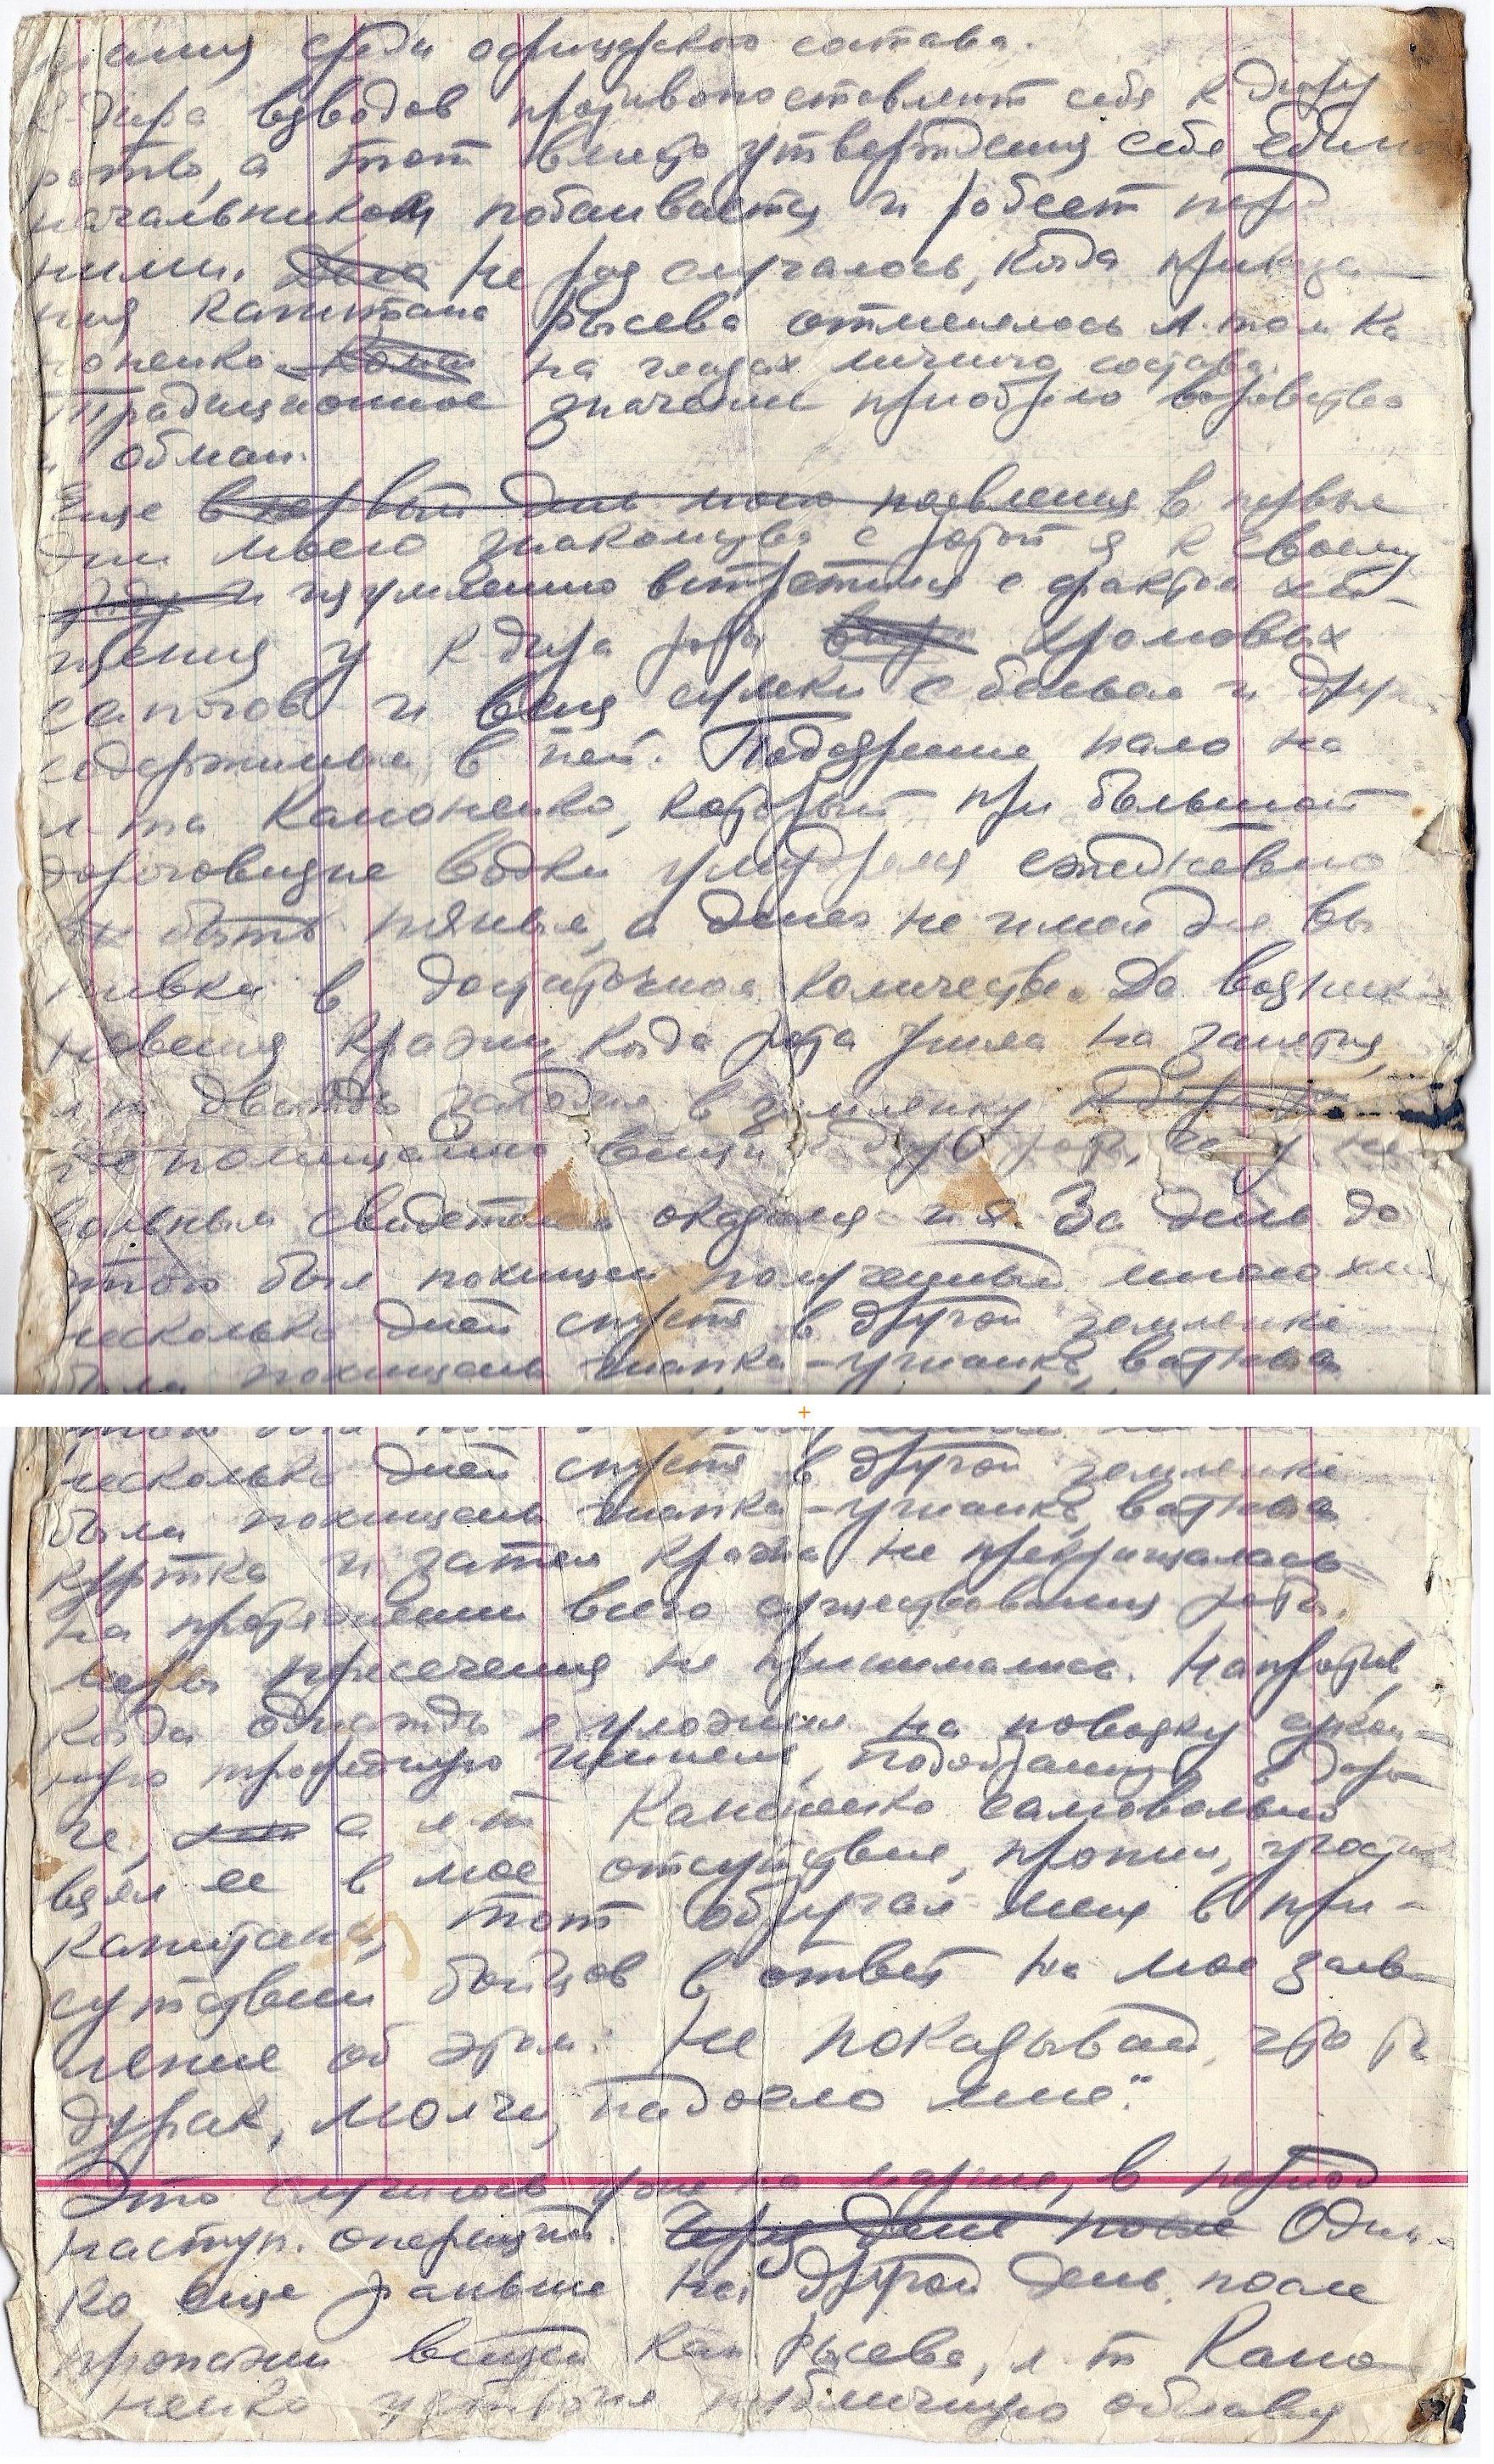 среди офицерского состава.
К-дира взводов противопоставляют себя к-диру
роты, а тот вместо утверждения себя едино
начальником побаивается и робеет перед
ними. Не раз случалось, когда приказа
ния капитана Рысева отменялось л-том Ка
поненко на глазах личного состава.
Традиционное значение приобрело воровство
и обман.
Еще в первый день моего появления в первые
дни моего знакомства с ротой я к своему
и изумлению встретился с фактом хи-
щения у к-дира роты хромовых
сапогов и вещ сумки с бельем и др.
содержимым в ней. Подозрение пало на
л-та Капоненко, который при большой
дороговизне водки умудрялся ежедневно
быть пьяным, а денег не имел для вы
пивки в достаточном количестве. До возник
новения кражи, когда рота ушла на занятия,
л-т дважды заходил в землянку
вещи к-дира роты, чему не
вольным свидетелем оказался и я. За день до
этого был похищен полученный
несколько дней спустя в другой землянке
были похищены шапка-ушанка, ватная
несколько дней спустя в другой землянке
были похищены шапка-ушанка, ватная
куртка и затем кража не прекращалась
на протяжении всего существования роты.
Меры пресечения не принимались. Напротив,
когда однажды я уложил на повозку сукон-
ную трофейную шинель, подобранную в доро
ге, а л-т Капоненко самовольно
взял ее в мое отсутствие, пропил, угостив
капитана, тот обругал меня в при-
сутствии бойцов в ответ на мое заяв-
ление об этом: Не показывай, что ты
дурак, молчи, надоело мне".
Это случилось уже на марше, в период
наступ. операций. Через день после Одна-
ко еще раньше на другой день после
пропажи вещей кап Рысева, л-т Капо
ненко устроил публичную облаву